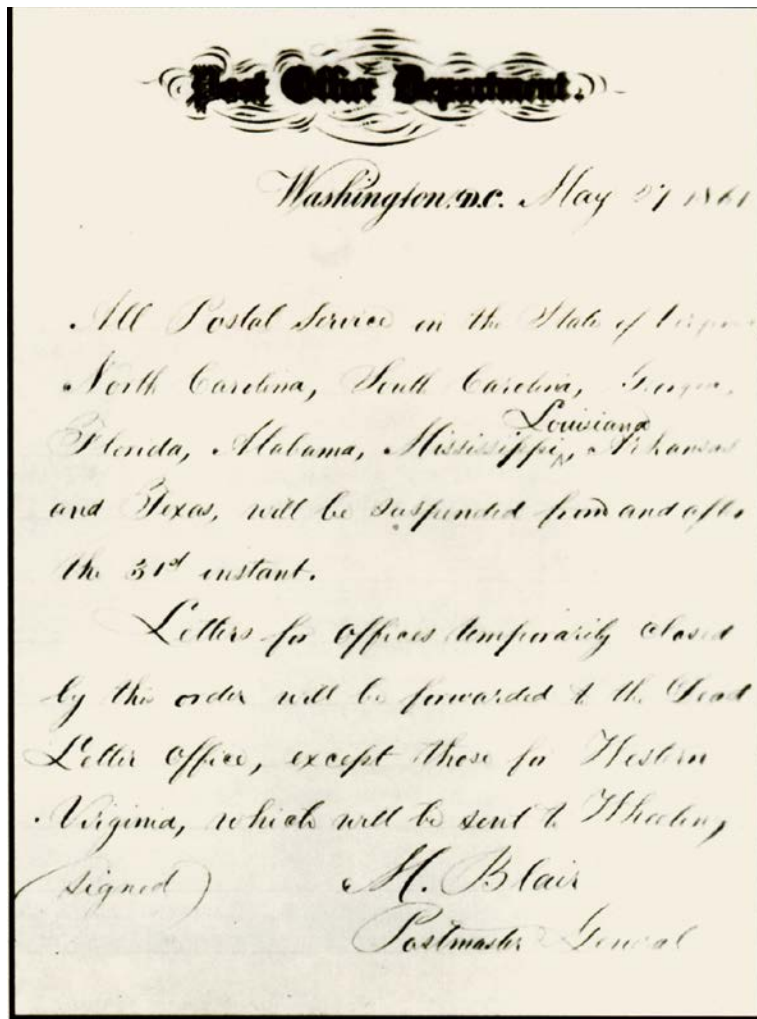 Post Office Department.
Washington, D.C. May 27 1861
All Postal Service in the State of Virginia
North Carolina, South Carolina, Georgia,
Louisiana
Florida, Alabama, Mississippi, Arkansas
and Texas, will be suspended from and after
the 31st instant.
Letters for offices temporarily closed
by this order will be forwarded to the Dead
Letter Office, except those for Western
Virginia, which will be sent to Wheeling,
(signed) M. Blair
Postmaster General